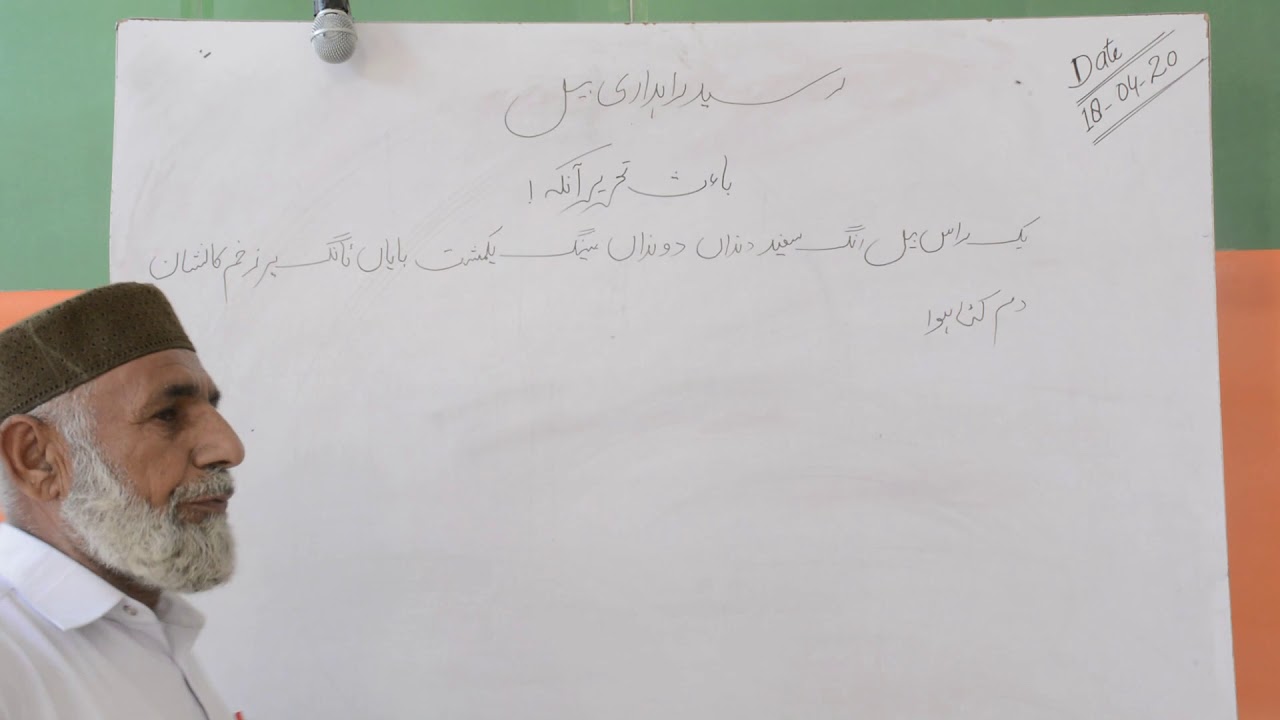 رسید راہداری بیل
Date
18-04-20
باعث تحریر آنکہ !
یک راس بیل رنگ سفید دنداں دونداں سینگ یکمشت بایاں ٹانگ پر زخم کا نشان
دم کٹا ہوا